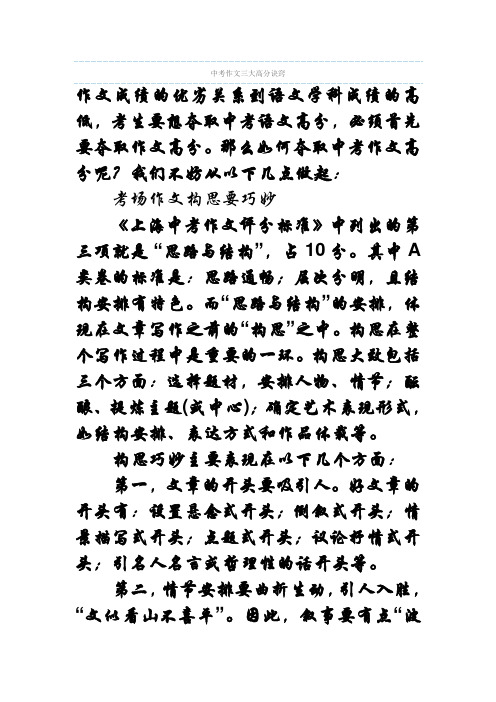 中考作文三大高分诀窍
作文成绩的优劣关系到语文学科成绩的高
低，考生要想夺取中考语文高分，必须首先
要夺取作文高分。那么如何夺取中考作文高
分呢？我们不妨从以下几点做起：
考场作文构思要巧妙
《上海中考作文评分标准》中列出的第
三项就是“思路与结构”，占10分。其中A
类卷的标准是：思路通畅；层次分明，且结
构安排有特色。而“思路与结构”的安排，体
现在文章写作之前的“构思”之中。构思在整
个写作过程中是重要的一环。构思大致包括
三个方面：选择题材，安排人物、情节；酝
酿、提炼主题(或中心)；确定艺术表现形式，
如结构安排、表达方式和作品体裁等。
构思巧妙主要表现在以下几个方面：
第一，文章的开头要吸引人。好文章的
开头有：设置悬念式开头；倒叙式开头；情
景描写式开头；点题式开头；议论抒情式开
头；引名人名言或哲理性的话开头等。
第二，情节安排要曲折生动，引人入胜，
“文似看山不喜平”。因此，叙事要有点“波